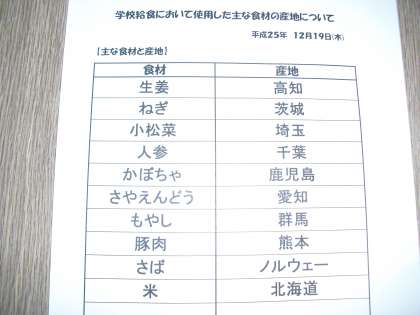 学校給食において使用した主な食材の産地について
平成25年 12月19日(木)
【主な食材と産地】
食材 産地
生姜 高知
ねぎ 茨城
小松菜 埼玉
人参 千葉
かぼちゃ 鹿児島
さやえんどう 愛知
もやし 群馬
豚肉 熊本
さば ノルウェー
米 北海道